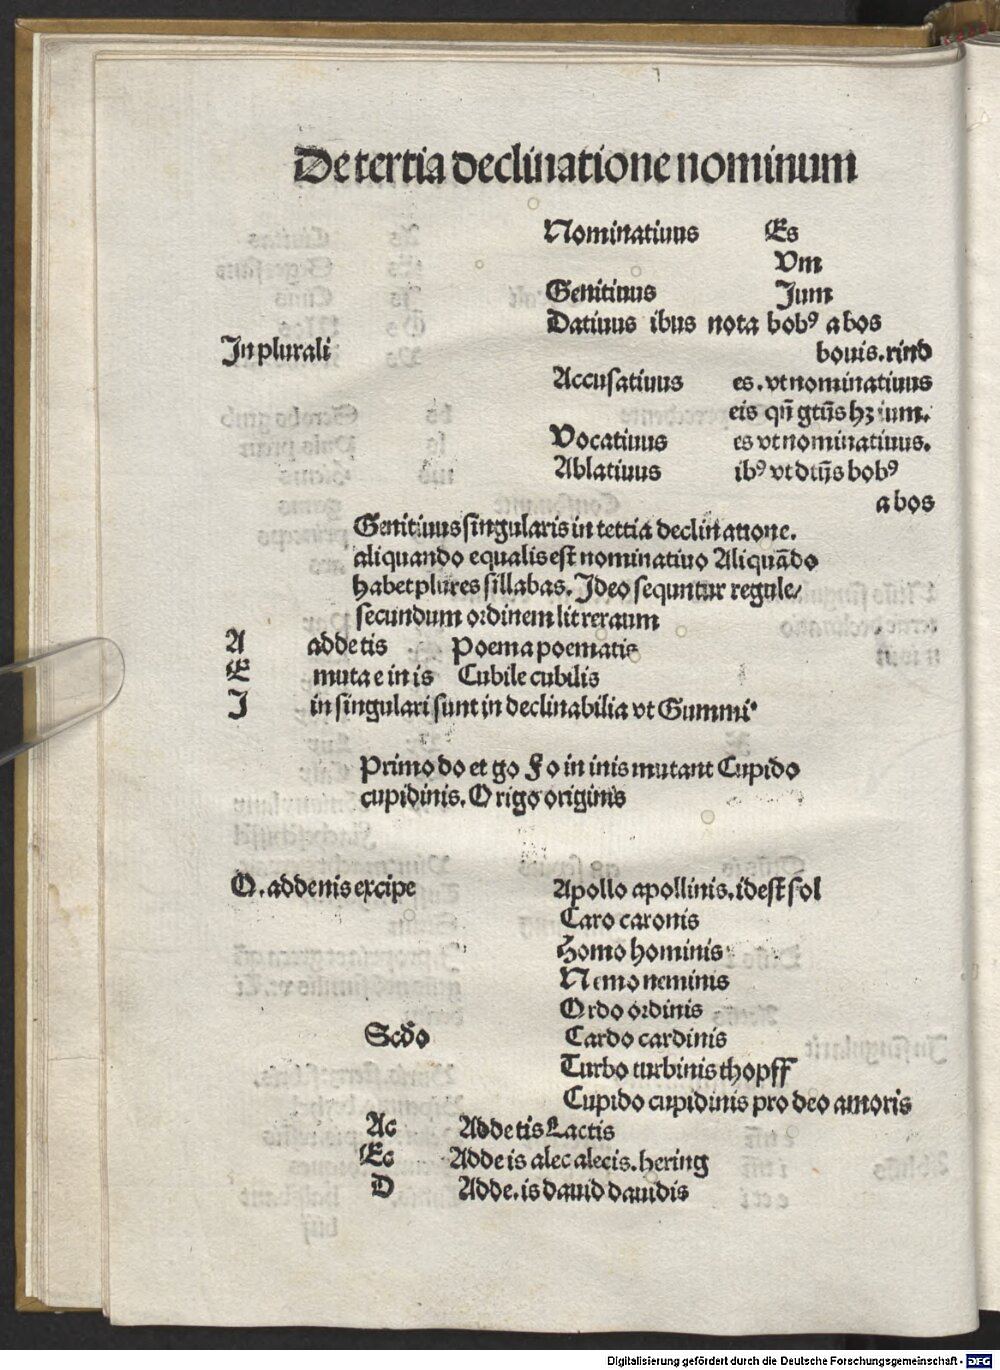 De tertia declinatione nominum
Nominatiuus Es
Vm
Genitiuus Jum
Datiuus ibus nota bobꝰ a bos
In plurali
bouis. rind
Accusatiuus es. vt nominatiuus
eis qñ gtũs hꝫ ium.
Vocatiuus es vt nominatiuus.
Ablatiuus ibꝰ vt dtĩis bobꝰ
a bos
Genitiuus singularis in tettia declinatione.
aliquando equalis est nominatiuo Aliquãdo
habet plures sillabas. Ideo sequntur regule/
secundum ordinem litteraum
A adde tis Poema poematis
E muta e in is Cubile cubilis
I in singulari sunt in declinabilia vt Gummi.
Primo do et go Fo in inis mutant Cupido
cupidinis. Origo originis
O. adde nis excipe Apollo apollinis. idest sol
Caro caronis
Homo hominis
Nemo neminis
Ordo ordinis
Scdo Cardo cardinis
Turbo turbinis thopff
Cupido cupidinis pro deo amoris
Ac Adde tis Lactis
Ec Adde is alec alecis. hering
D Adde. is dauid dauidis
Digitalisierung gefördert durch die Deutsche Forschungsgemeinschaft - DFG